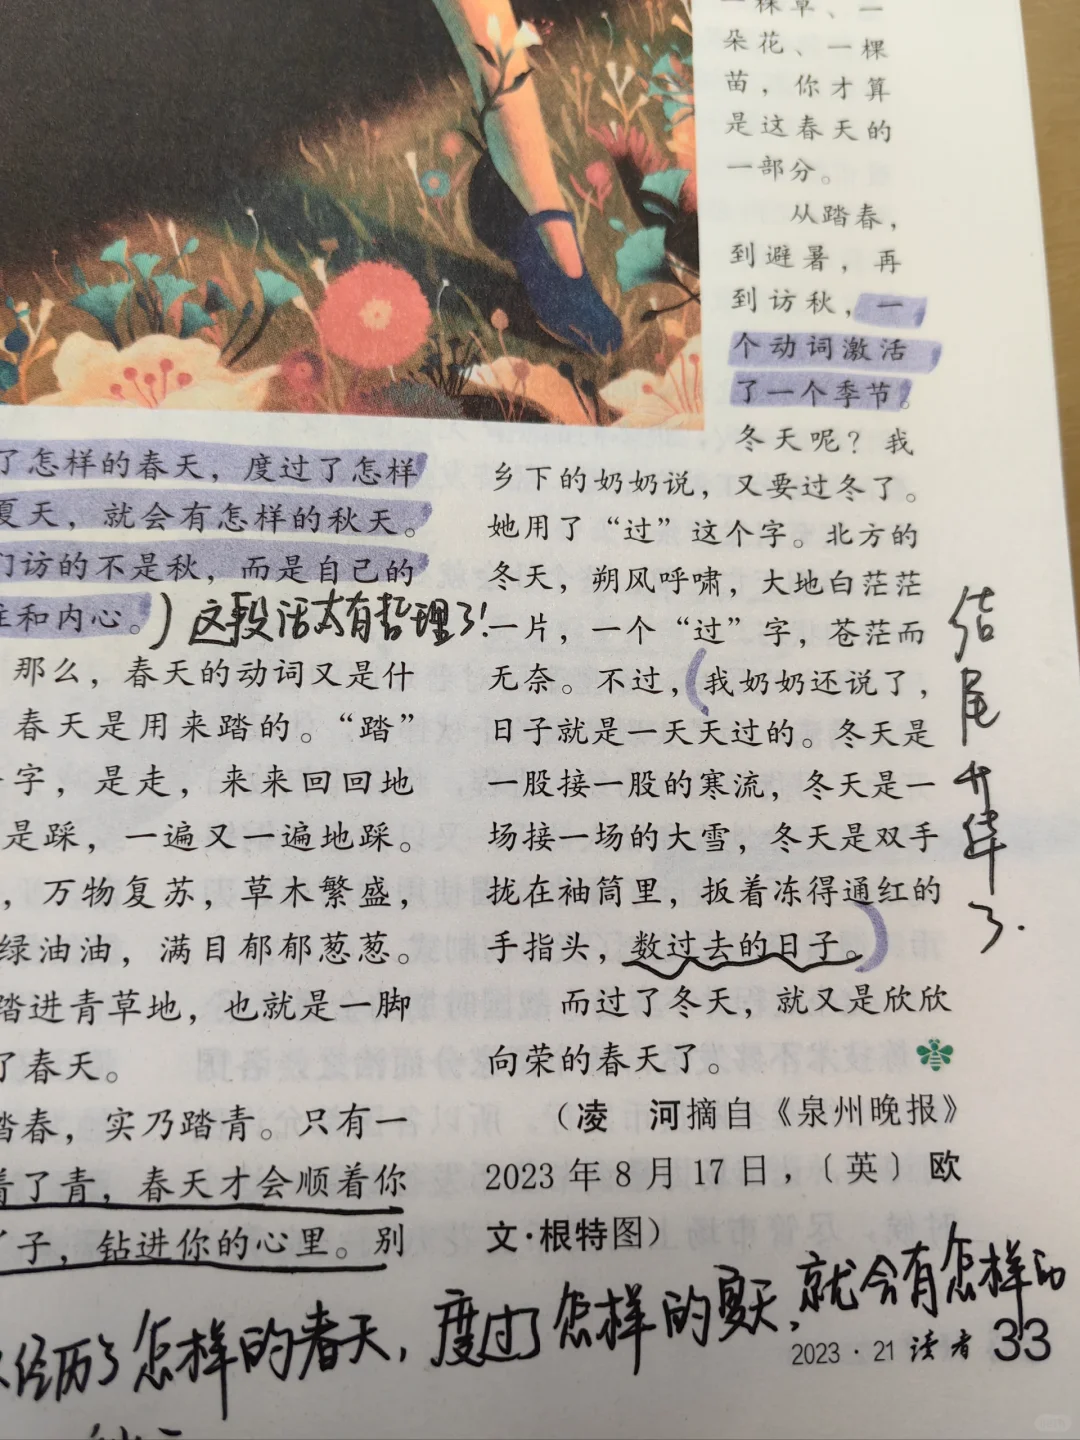 了怎样的春天，度过了怎样
夏天，就会有怎样的秋天。
们访的不是秋，而是自己的
和内心。）这段话太有哲理了！
那么，春天的动词又是什
春天是用来踏的。“踏”
字，是走，来来回回地
是踩，一遍又一遍地踩。
，万物复苏，草木繁盛，
绿油油，满目郁郁葱葱。
踏进青草地，也就是一脚
了春天。
踏春，实乃踏青。只有一
着了青，春天才会顺着你
子，钻进你的心里。别
一棵草、一
朵花、一棵
苗，你才算
是这春天的
一部分。
从踏春，
到避暑，再
到访秋，一
个动词激活
了一个季节。
冬天呢？我
乡下的奶奶说，又要过冬了。
她用了“过”这个字。北方的
冬天，朔风呼啸，大地白茫茫
一片，一个“过”字，苍茫而
无奈。不过，（我奶奶还说了，
日子就是一天天过的。冬天是
一股接一股的寒流，冬天是一
场接一场的大雪，冬天是双手
拢在袖筒里，扳着冻得通红的
手指头，数过去的日子。）
而过了冬天，就又是欣欣
向荣的春天了。
（凌　河摘自《泉州晚报》
2023年8月17日，〔英〕欧
文·根特图）
结尾升华了.
经历了怎样的春天，度过了怎样的夏天，就会有怎样的
2023·21 读者 33